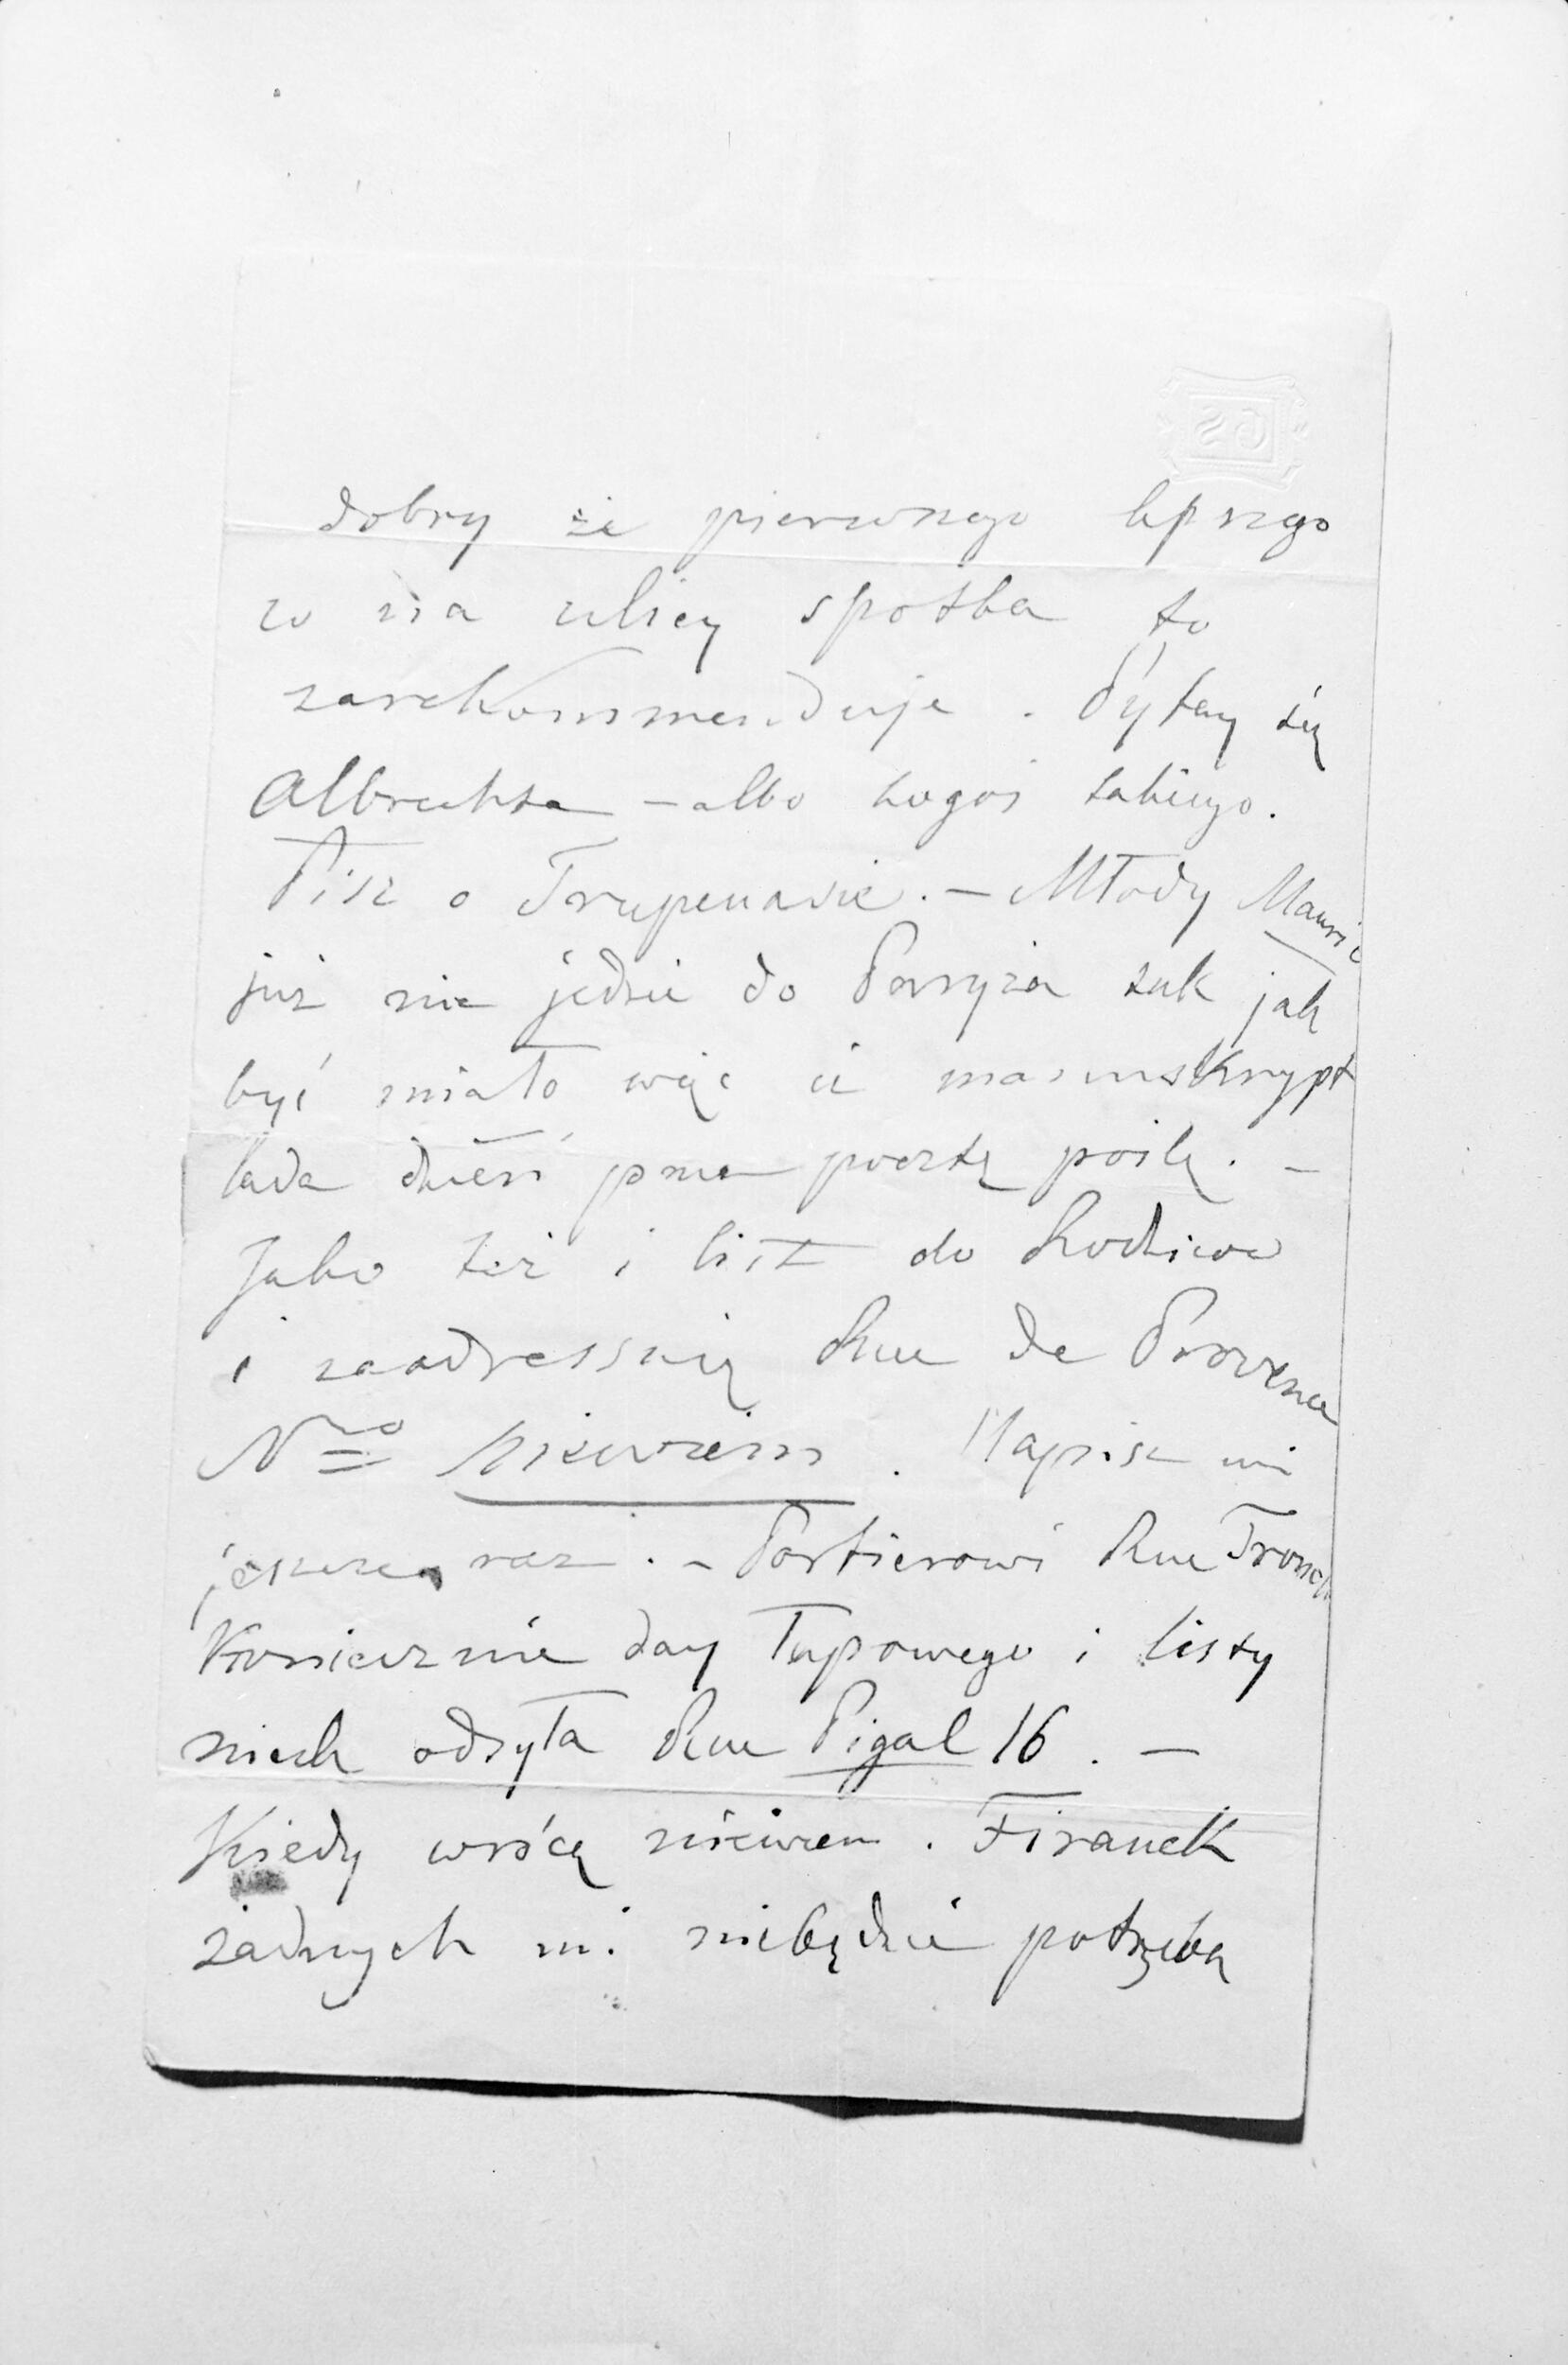 dobry że pierwszego lepszego
co na ulicy spotka to
zarekommenduje. Pytay się
Albrechta – albo kogoś takiego.
Pisz o Trupenasie. – Młody Mauric
już nie jedzie do Paryża tak jak
być miało więc ci manuskrypt
lada dzień przez pocztę poślę. –
Jako też i list do Rodziców
i zaadressuię Rue de Provence
Nro niewiem. Napisz mi
jeszcze raz. – Portierowi Rue Tronch
Koniecznie day Tupowego i listy
niech odsyła Rue Pigal 16. –
Kiedy wrócę niewiem. Firanek
żadnych mi niebędzie potrzeba